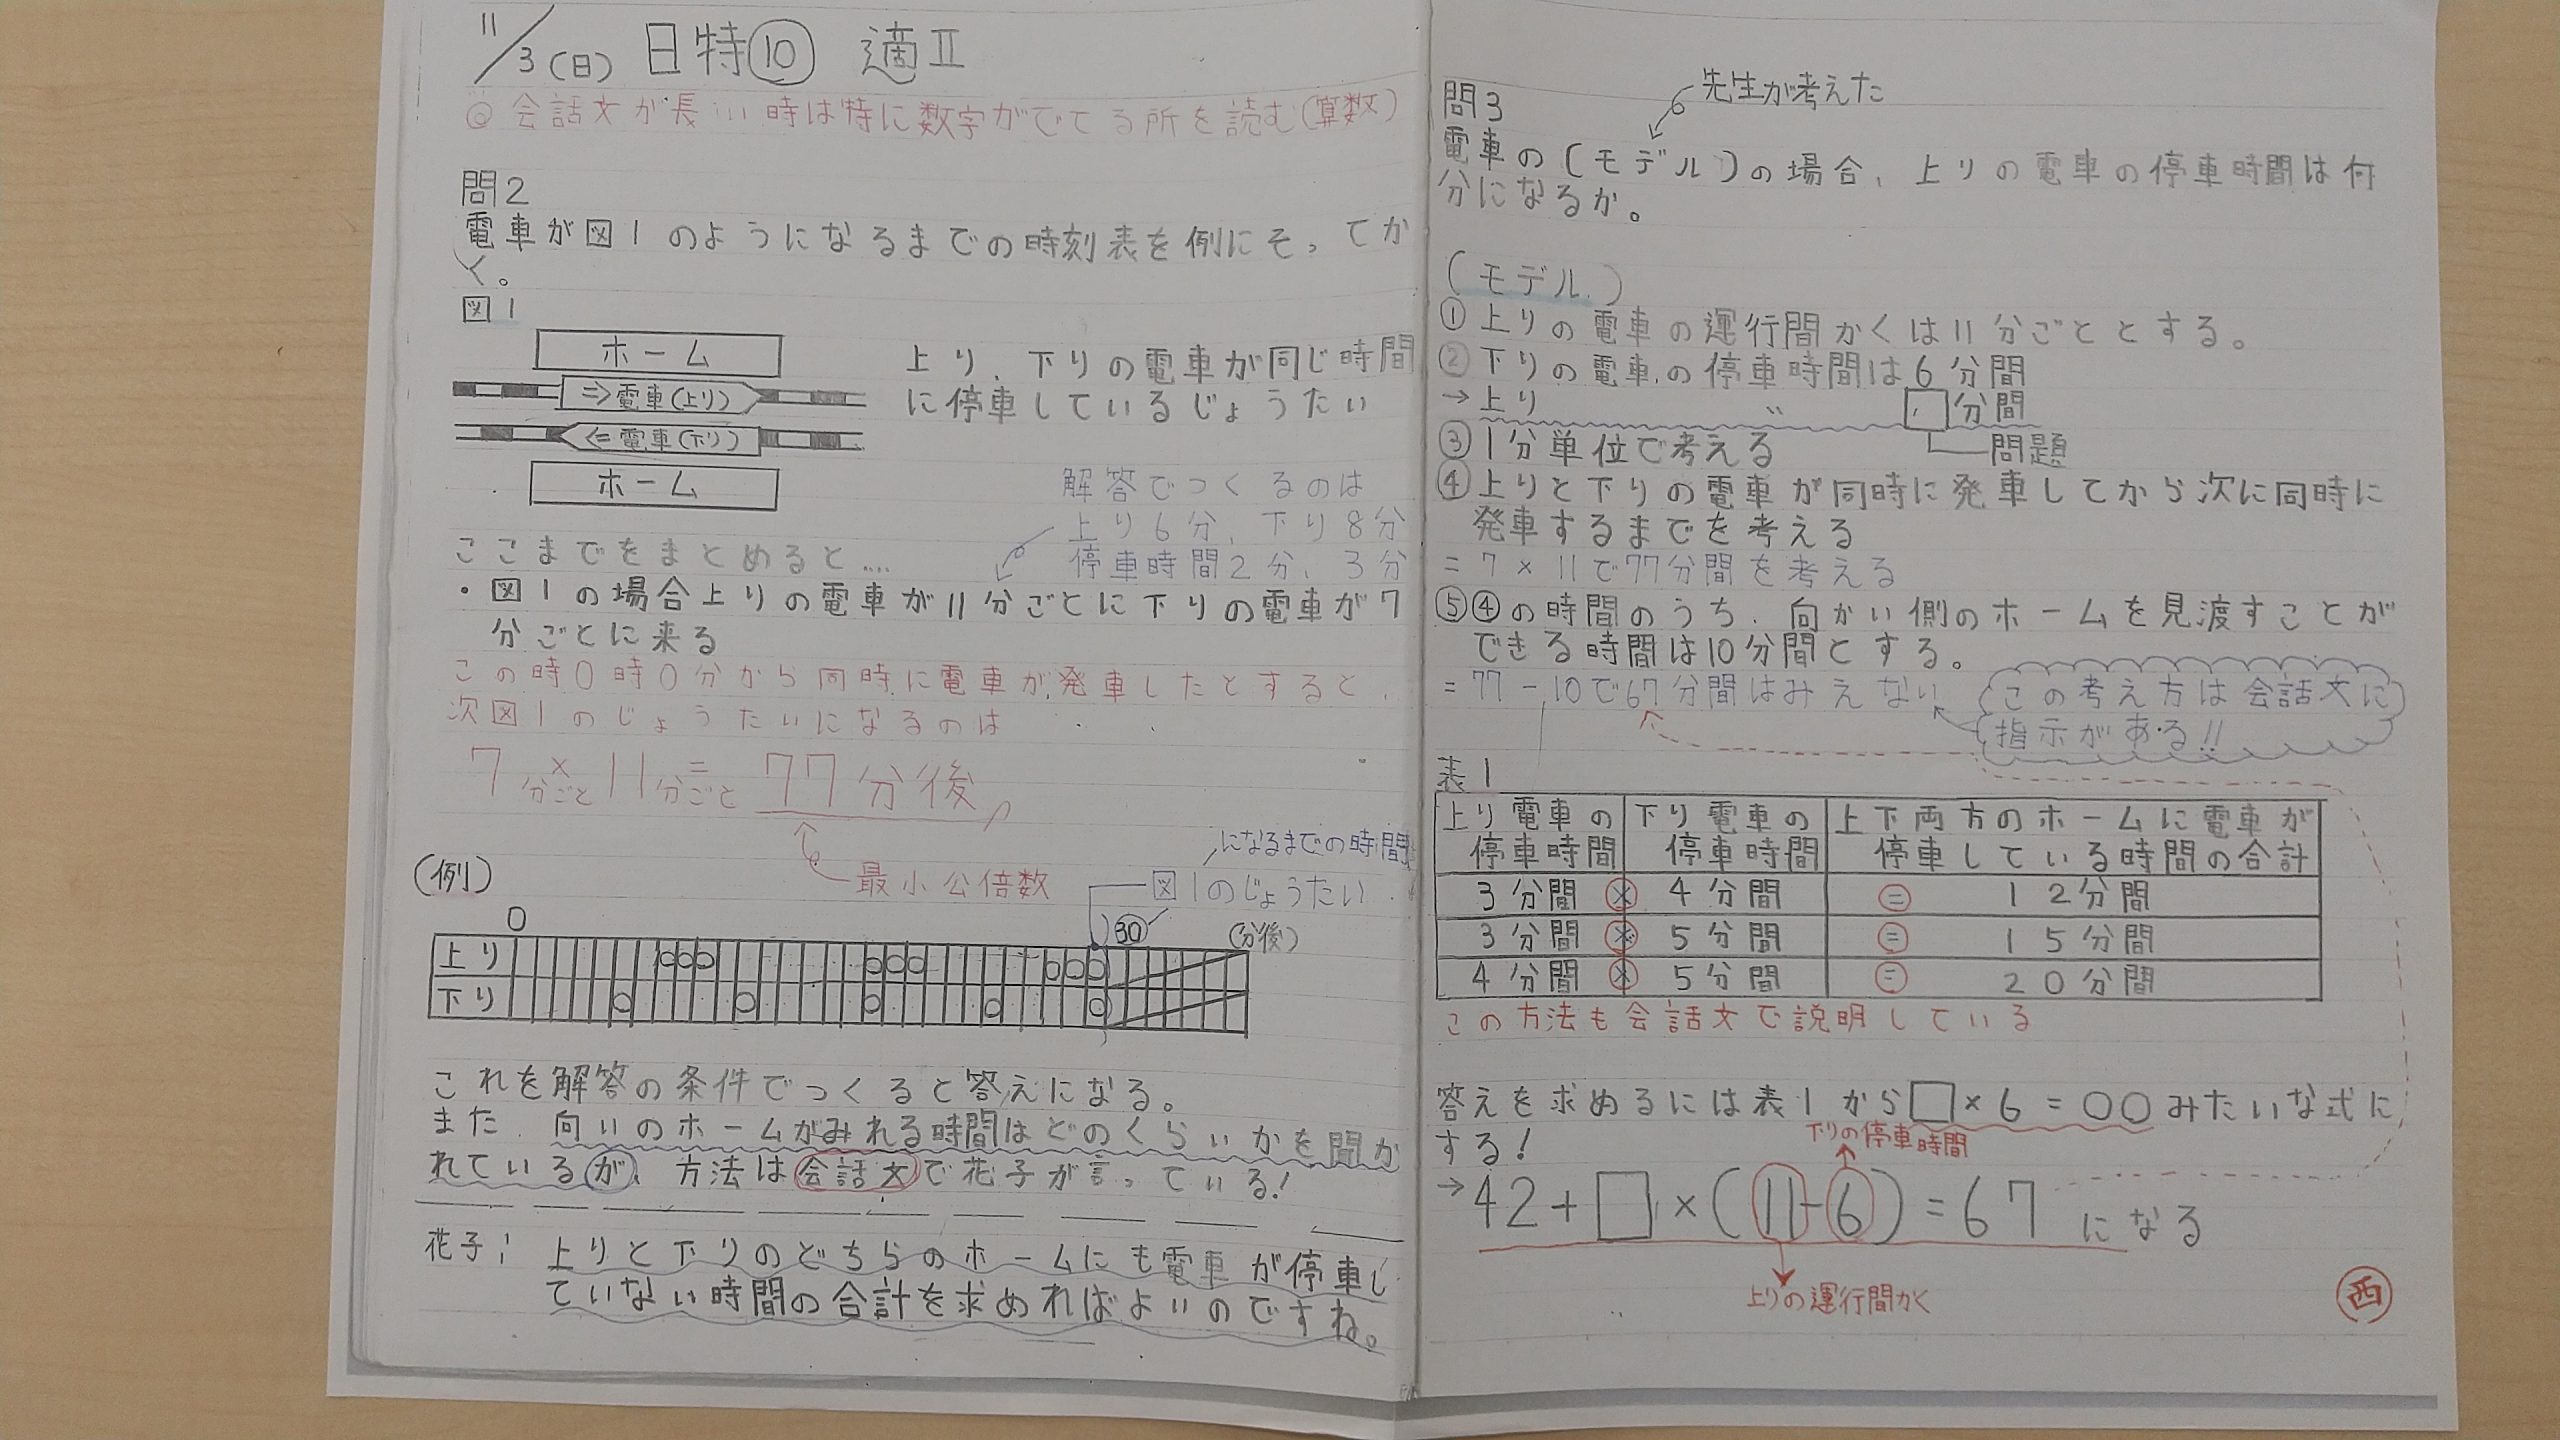 11/3(日) 日特⑩ 適Ⅱ
◎会話文が長い時は特に数字がでてる所を読む(算数)
問2
電車が図1のようになるまでの時刻表を例にそってか
く。
図1
ホーム
⇒電車(上り)
⇐電車(下り)
ホーム
上り、下りの電車が同じ時間
に停車しているじょうたい
解答でつくるのは
上り6分、下り8分
停車時間2分、3分
ここまでをまとめると....
・図1の場合上りの電車が11分ごとに下りの電車が7
分ごとに来る
この時0時0分から同時に電車が発車したとすると、
次図1のじょうたいになるのは
7分ごと×11分ごと=77分後
最小公倍数
になるまでの時間
図1のじょうたい
(例)
0
30
(分後)
上り
下り
これを解答の条件でつくると答えになる。
また、向いのホームがみれる時間はどのくらいかを聞か
れているが、方法は会話文で花子が言っている!
花子; 上りと下りのどちらのホームにも電車が停車し
ていない時間の合計を求めればよいのですね。
先生が考えた
問3
電車の(モデル)の場合、上りの電車の停車時間は何
分になるか。
(モデル)
①上りの電車の運行間かくは11分ごととする。
②下りの電車の停車時間は6分間
→上り 〃 □分間
問題
③1分単位で考える
④上りと下りの電車が同時に発車してから次に同時に
発車するまでを考える
=7×11で77分間を考える
⑤④の時間のうち、向かい側のホームを見渡すことが
できる時間は10分間とする。
=77-10で67分間はみえない
この考え方は会話文に
指示がある!!
表1
上り電車の停車時間 下り電車の停車時間 上下両方のホームに電車が停車している時間の合計
3分間 × 4分間 = 12分間
3分間 × 5分間 = 15分間
4分間 × 5分間 = 20分間
この方法も会話文で説明している
答えを求めるには表1から□×6=○○みたいな式に
する!
下りの停車時間
→42+□×(11-6)=67 になる
上りの運行間かく
西